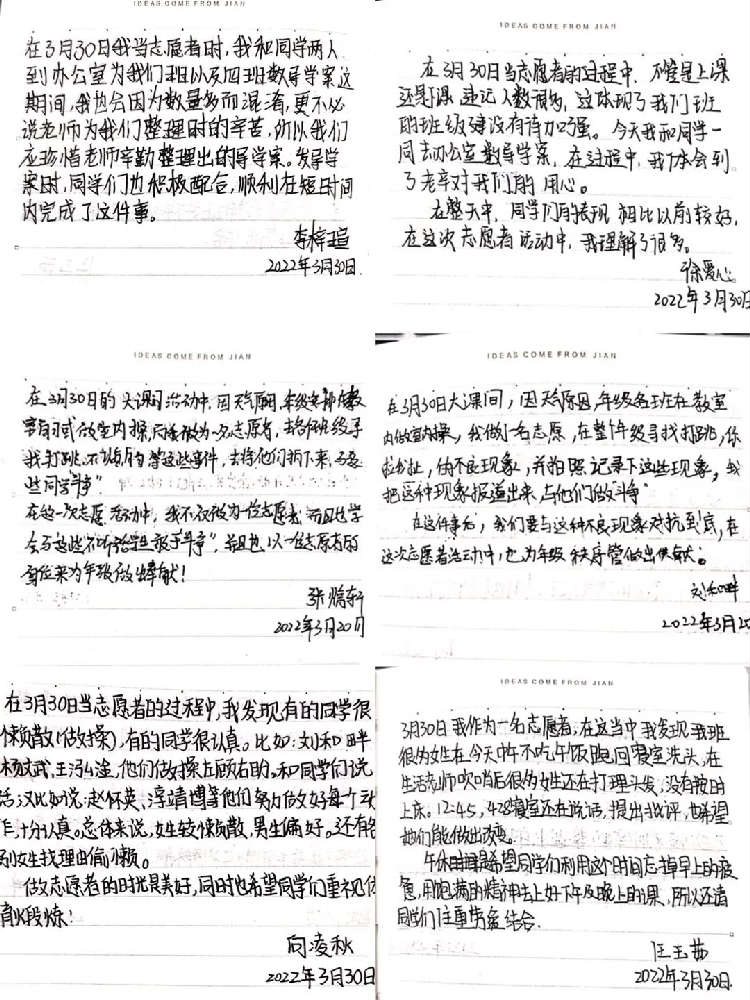 IDEAS COME FROM JIAN
在3月30日我当志愿者时,我和同学两人
到办公室为我们班以及四班数导学案这
期间,我也会因为数量多而混淆,更不必
说老师为我们整理时的辛苦,所以我们
应珍惜老师辛勤整理出的导学案。发导学
案时,同学们也积极配合,顺利在短时间
内完成了这件事。
李梓瑄
2022年3月30日.
IDEAS COME FROM JIAN
在3月30日当志愿者的过程中,不管是上课
还是下课,违记人数很多,这体现了我们班
的班级建设有待加强。今天我和同学一
同去办公室数导学案,在过程中,我体会到
了老辛对我们的用心。
在整天中,同学们的表现相比以前较好,
在这次志愿者活动中,我理解了很多。
徐爱心
2022年3月30日
IDEAS COME FROM JIAN
在3月30日的大课间活动中,因天气原因,年级安排在教
室做室内操,而我被为一名志愿者,去各班级寻
找打跳、不
些同学"斗争"
在这一次志愿活动中,我不仅被为一位志愿者而且也学
会与这些"斗争",并且也以一位志愿者的
身位来为年级做出奉献!
张
2022年3月20日
IDEAS COME FROM JIAN
在3月30日大课间,因天气原因,年级各班在教室
内做室内操,我做一名志愿,在整个年级寻找打跳,
垃圾,做不良现象,并拍照记录下这些现象,我
把这种现象报道出来,与他们做"斗争"
在这件事后,我们要与这种不良现象对抗到底,在
这次志愿者活动中,也为年级秩序管做出供献。
刘和畔
2022年3月
在3月30日当志愿者的过程中,我发现有的同学很
懒散(做操),有的同学很认真。比如:刘和畔
杨文武,王,他们做操左顾右盼。和同学们说
话,又比如说:赵怀英、淳靖博等他们努力做好每个动
作十分认真。总体来说,女生较懒散,男生偏好。还有各
别女生找理由偷懒。
做志愿者的时光是美好,同时也希望同学们重视体
育锻炼!
向凌秋
2022年3月30日
IDEAS COME FROM JIAN
3月30日我作为一名志愿者,在这当中我发现我班
很多女生在今天中午不吃午饭跑回寝室洗头,在
生活老师吹哨后很多女生还在打理头发,没有按时
上床。12:45,428寝室还在说话,提出批评,也希望
她们能做出改变。
午休时间是希望同学们利用这个时间忘掉早上的疲
惫,用饱满的精神去上好下午及晚上的课,所以还请
同学们注重劳逸结合.
汪玉茹
2022年3月30日.